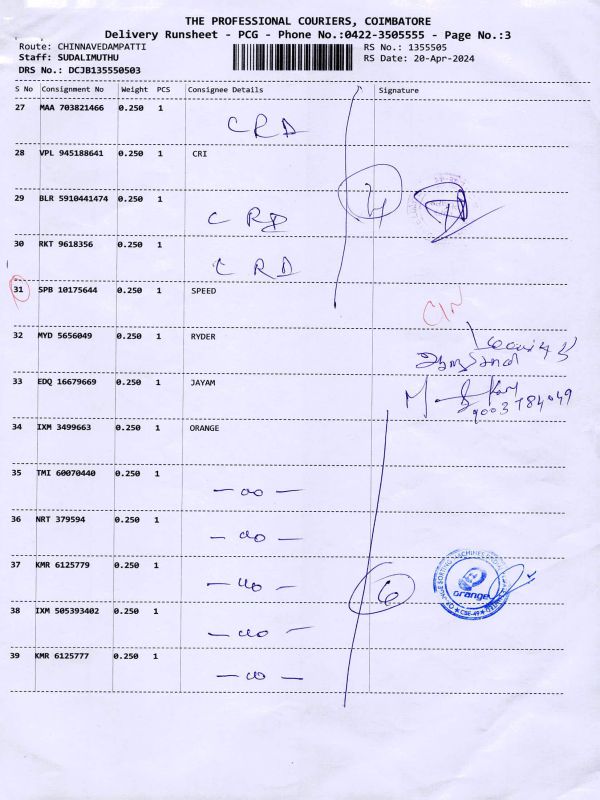 THE PROFESSIONAL COURIERS, COIMBATORE
Delivery Runsheet - PCG - Phone No.:0422-3505555 - Page No.:3
Route: CHINNAVEDAMPATTI
RS No.: 1355505
Staff: SUDALIMUTHU
RS Date: 20-Apr-2024
DRS No.: DCJB135550503
S No Consignment No Weight PCS Consignee Details Signature
27 MAA 703821466 0.250 1
CRD
28 VPL 945188641 0.250 1 CRI
4
29 BLR 5910441474 0.250 1
CRD
30 RKT 9618356 0.250 1
CRD
31 SPB 10175644 0.250 1 SPEED
C/N
32 MYD 5656049 0.250 1 RYDER
33 EDQ 16679669 0.250 1 JAYAM
9003784049
34 IXM 3499663 0.250 1 ORANGE
35 TMI 60070440 0.250 1
36 NRT 379594 0.250 1
37 KMR 6125779 0.250 1
6
orange
38 IXM 505393402 0.250 1
39 KMR 6125777 0.250 1